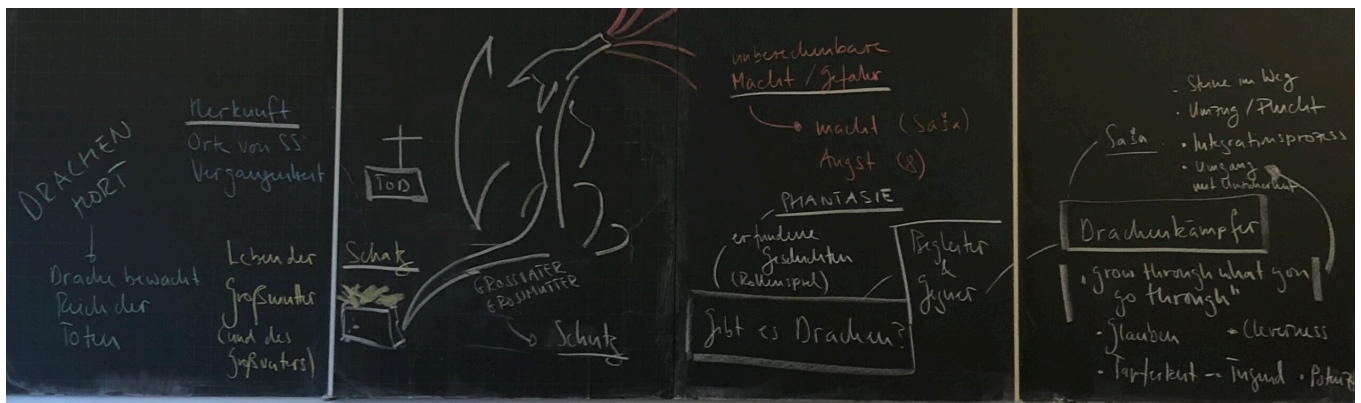 DRACHEN
HORT
Drache bewacht
Reich der
Toten
Herkunft
Orte von SS
Vergangenheit
Leben der
Großmutter
(und des
Großvaters)
TOD
Schatz
GROSSVATER
GROSSMUTTER
Schutz
unberechenbare
Macht / Gefahr
macht (Saša)
Angst
PHANTASIE
erfundene
Geschichten
(Rollenspiel)
Gibt es Drachen?
Begleiter
&
Gegner
Saša
• Steine im Weg
• Umzug / Flucht
• Integrationsprozess
• Umgang
mit Unsicherheit
Drachenkämpfer
"grow through what you
go through"
• Glauben
• Cleverness
• Tapferkeit
Tugend